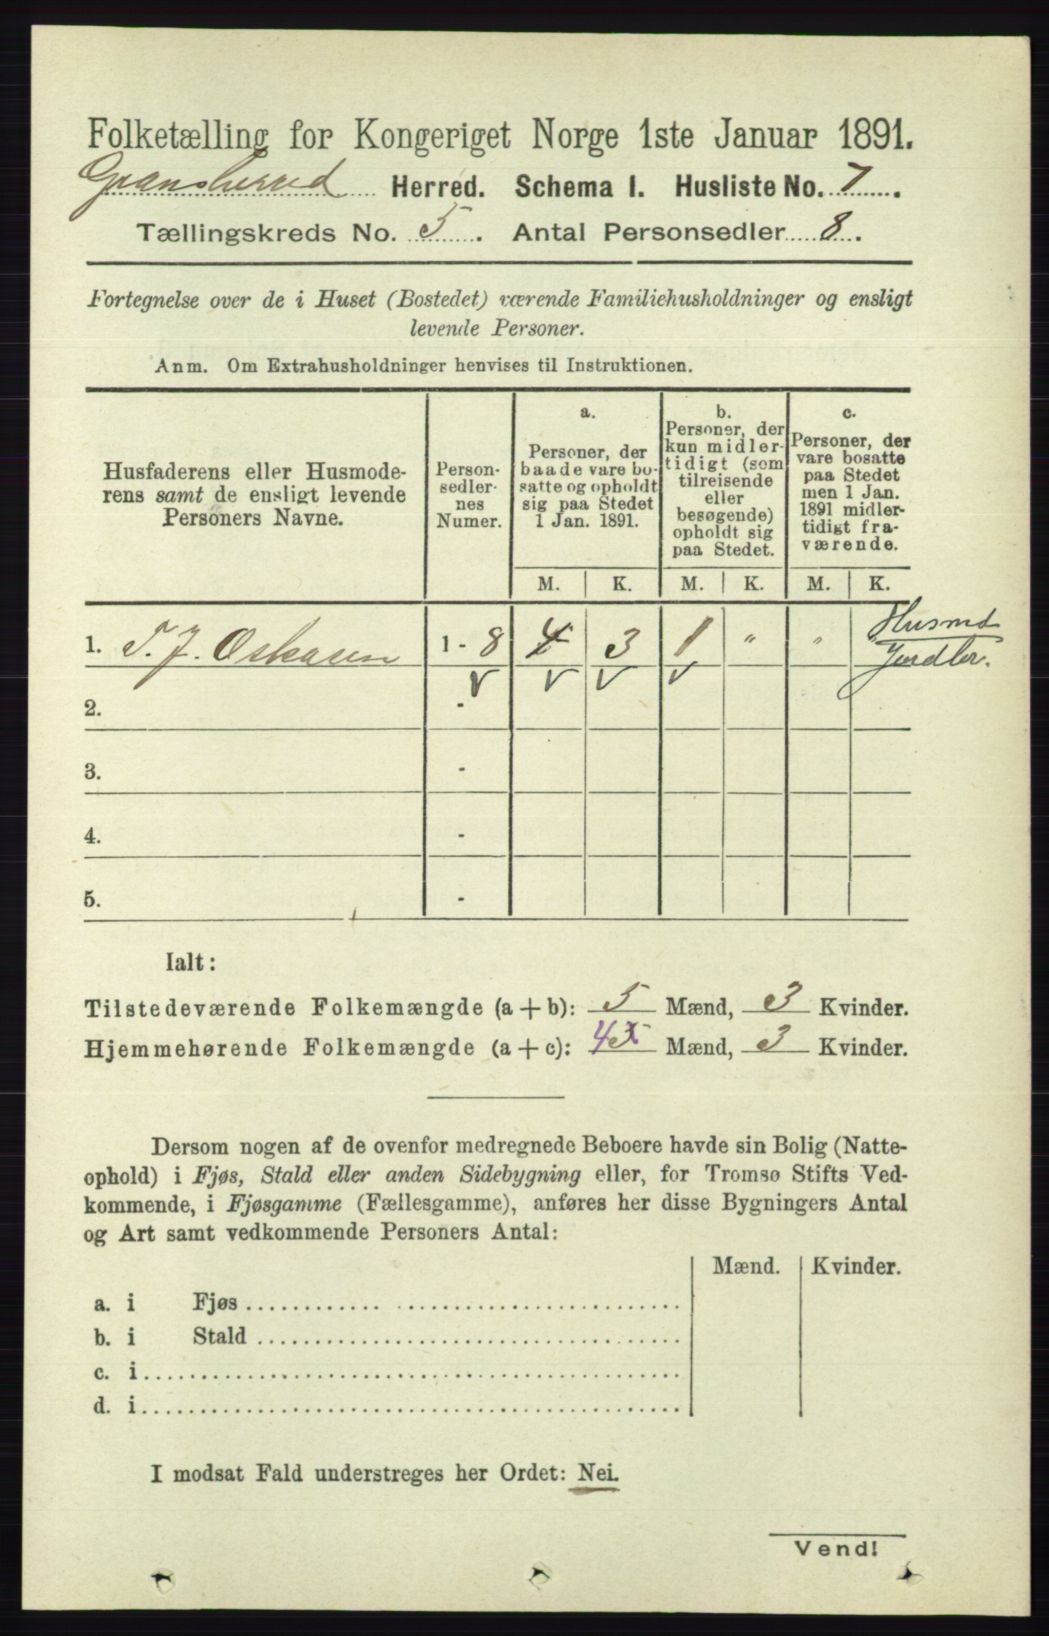 Folketælling for Kongeriget Norge 1ste Januar 1891.
Gransherred Herred. Schema I. Husliste No. 7.
Tællingskreds No. 5. Antal Personsedler 8.
Fortegnelse over de i Huset (Bostedet) værende Familiehusholdninger og ensligt
levende Personer.
Anm. Om Extrahusholdninger henvises til Instruktionen.
Husfaderens eller Husmode-
rens samt de ensligt levende
Personers Navne.
Person-
sedler-
nes
Numer.
a.
Personer, der
baade vare bo-
satte og opholdt
sig paa Stedet
1 Jan. 1891.
b.
Personer, der
kun midler-
tidigt (som
tilreisende
eller
besøgende)
opholdt sig
paa Stedet.
c.
Personer, der
vare bosatte
paa Stedet
men 1 Jan.
1891 midler-
tidigt fra-
værende.
M. K. M. K. M. K.
1. T. J. Oskasen 1 - 8 4 3 1 " " Husmd
Jordbr.
2. -
3. -
4. -
5. -
Ialt:
Tilstedeværende Folkemængde (a + b): 5 Mænd, 3 Kvinder.
Hjemmehørende Folkemængde (a + c): 4 5 Mænd, 3 Kvinder.
Dersom nogen af de ovenfor medregnede Beboere havde sin Bolig (Natte-
ophold) i Fjøs, Stald eller anden Sidebygning eller, for Tromsø Stifts Ved-
kommende, i Fjøsgamme (Fællesgamme), anføres her disse Bygningers Antal
og Art samt vedkommende Personers Antal:
Mænd. Kvinder.
a. i Fjøs
b. i Stald
c. i
d. i
I modsat Fald understreges her Ordet: Nei.
Vend!